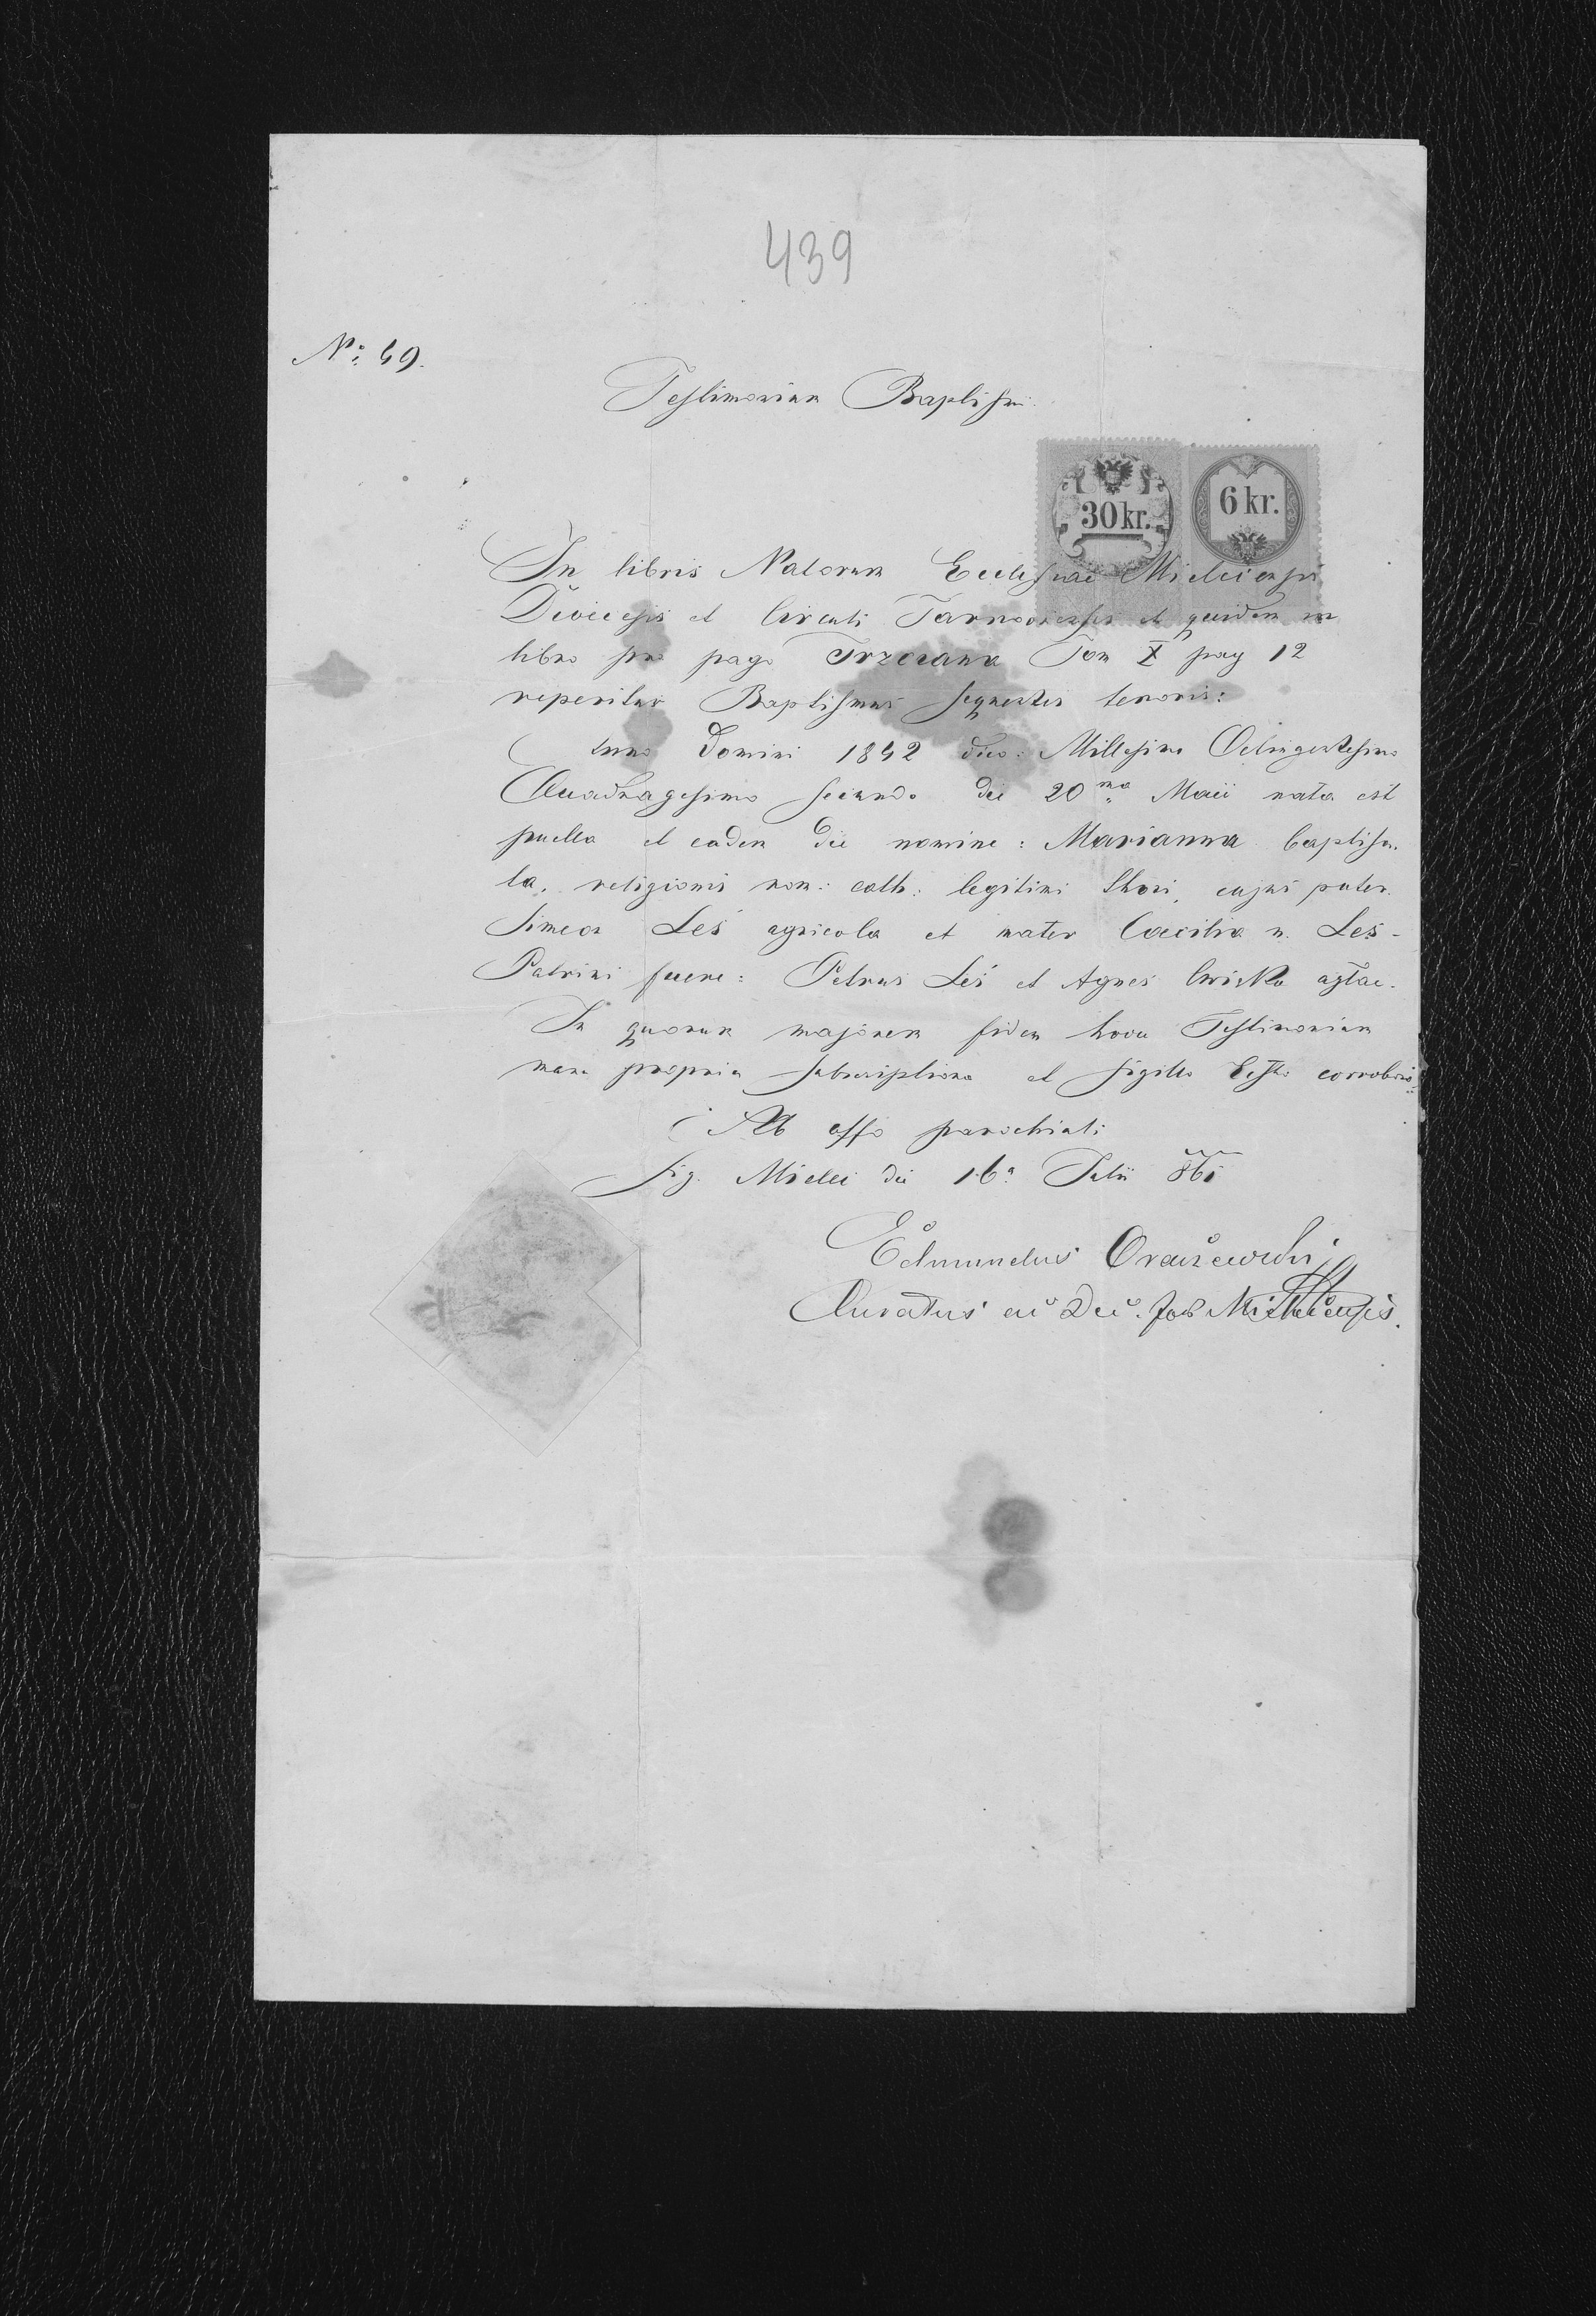 439
No: 49.
Testimonium Baptismi.
30 kr.
6 kr.
In libris Natorum Ecclesiae Mielecensis
Dioecesis et Circuli Tarnoviensis et quidem in
libro pro pago Trzciana Tom X pag 12
reperitur Baptismus sequentis tenoris:
Anno Domini 1842 dico: Millesimo Octingentesimo
Quadragesimo secundo die 20ma Maii nata est
puella et eadem die nomine: Marianna baptisa-
ta, religionis rom: cath: legitimi thori, cujus pater
Simeon Leś agricola et mater Caecilia n. Leś -
Patrini fuere: Petrus Leś et Agnes agtae.
In quorum majorem fidem hocce Testimonium
manu propria subscriptione et sigillo Ecclo corroboro
Ab offo parochiali
Sig. Mielec die 16a Julii 861
Edmundus
Curatus ac Dec. For Mielecensis.